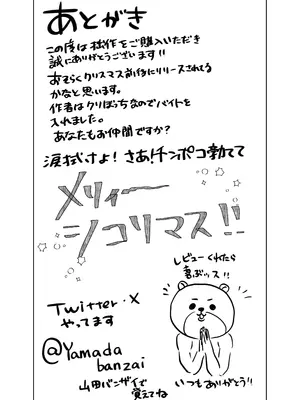 あとがき
この度は拙作をご購入いただき
誠にありがとうございます!!
おそらくクリスマス前後にリリースされてる
かなと思います。
作者はクリぼっちなのでバイトを
入れました。
あなたもお仲間ですか?
涙拭けよ!さあ!チンポコ勃てて
メリィー
シコリマス!!
レビューくれたら
喜ぶッス!!
Twitter・X
やってます
@Yamada
banzai
山田バンザイで
覚えてね
いつもありがとう!!